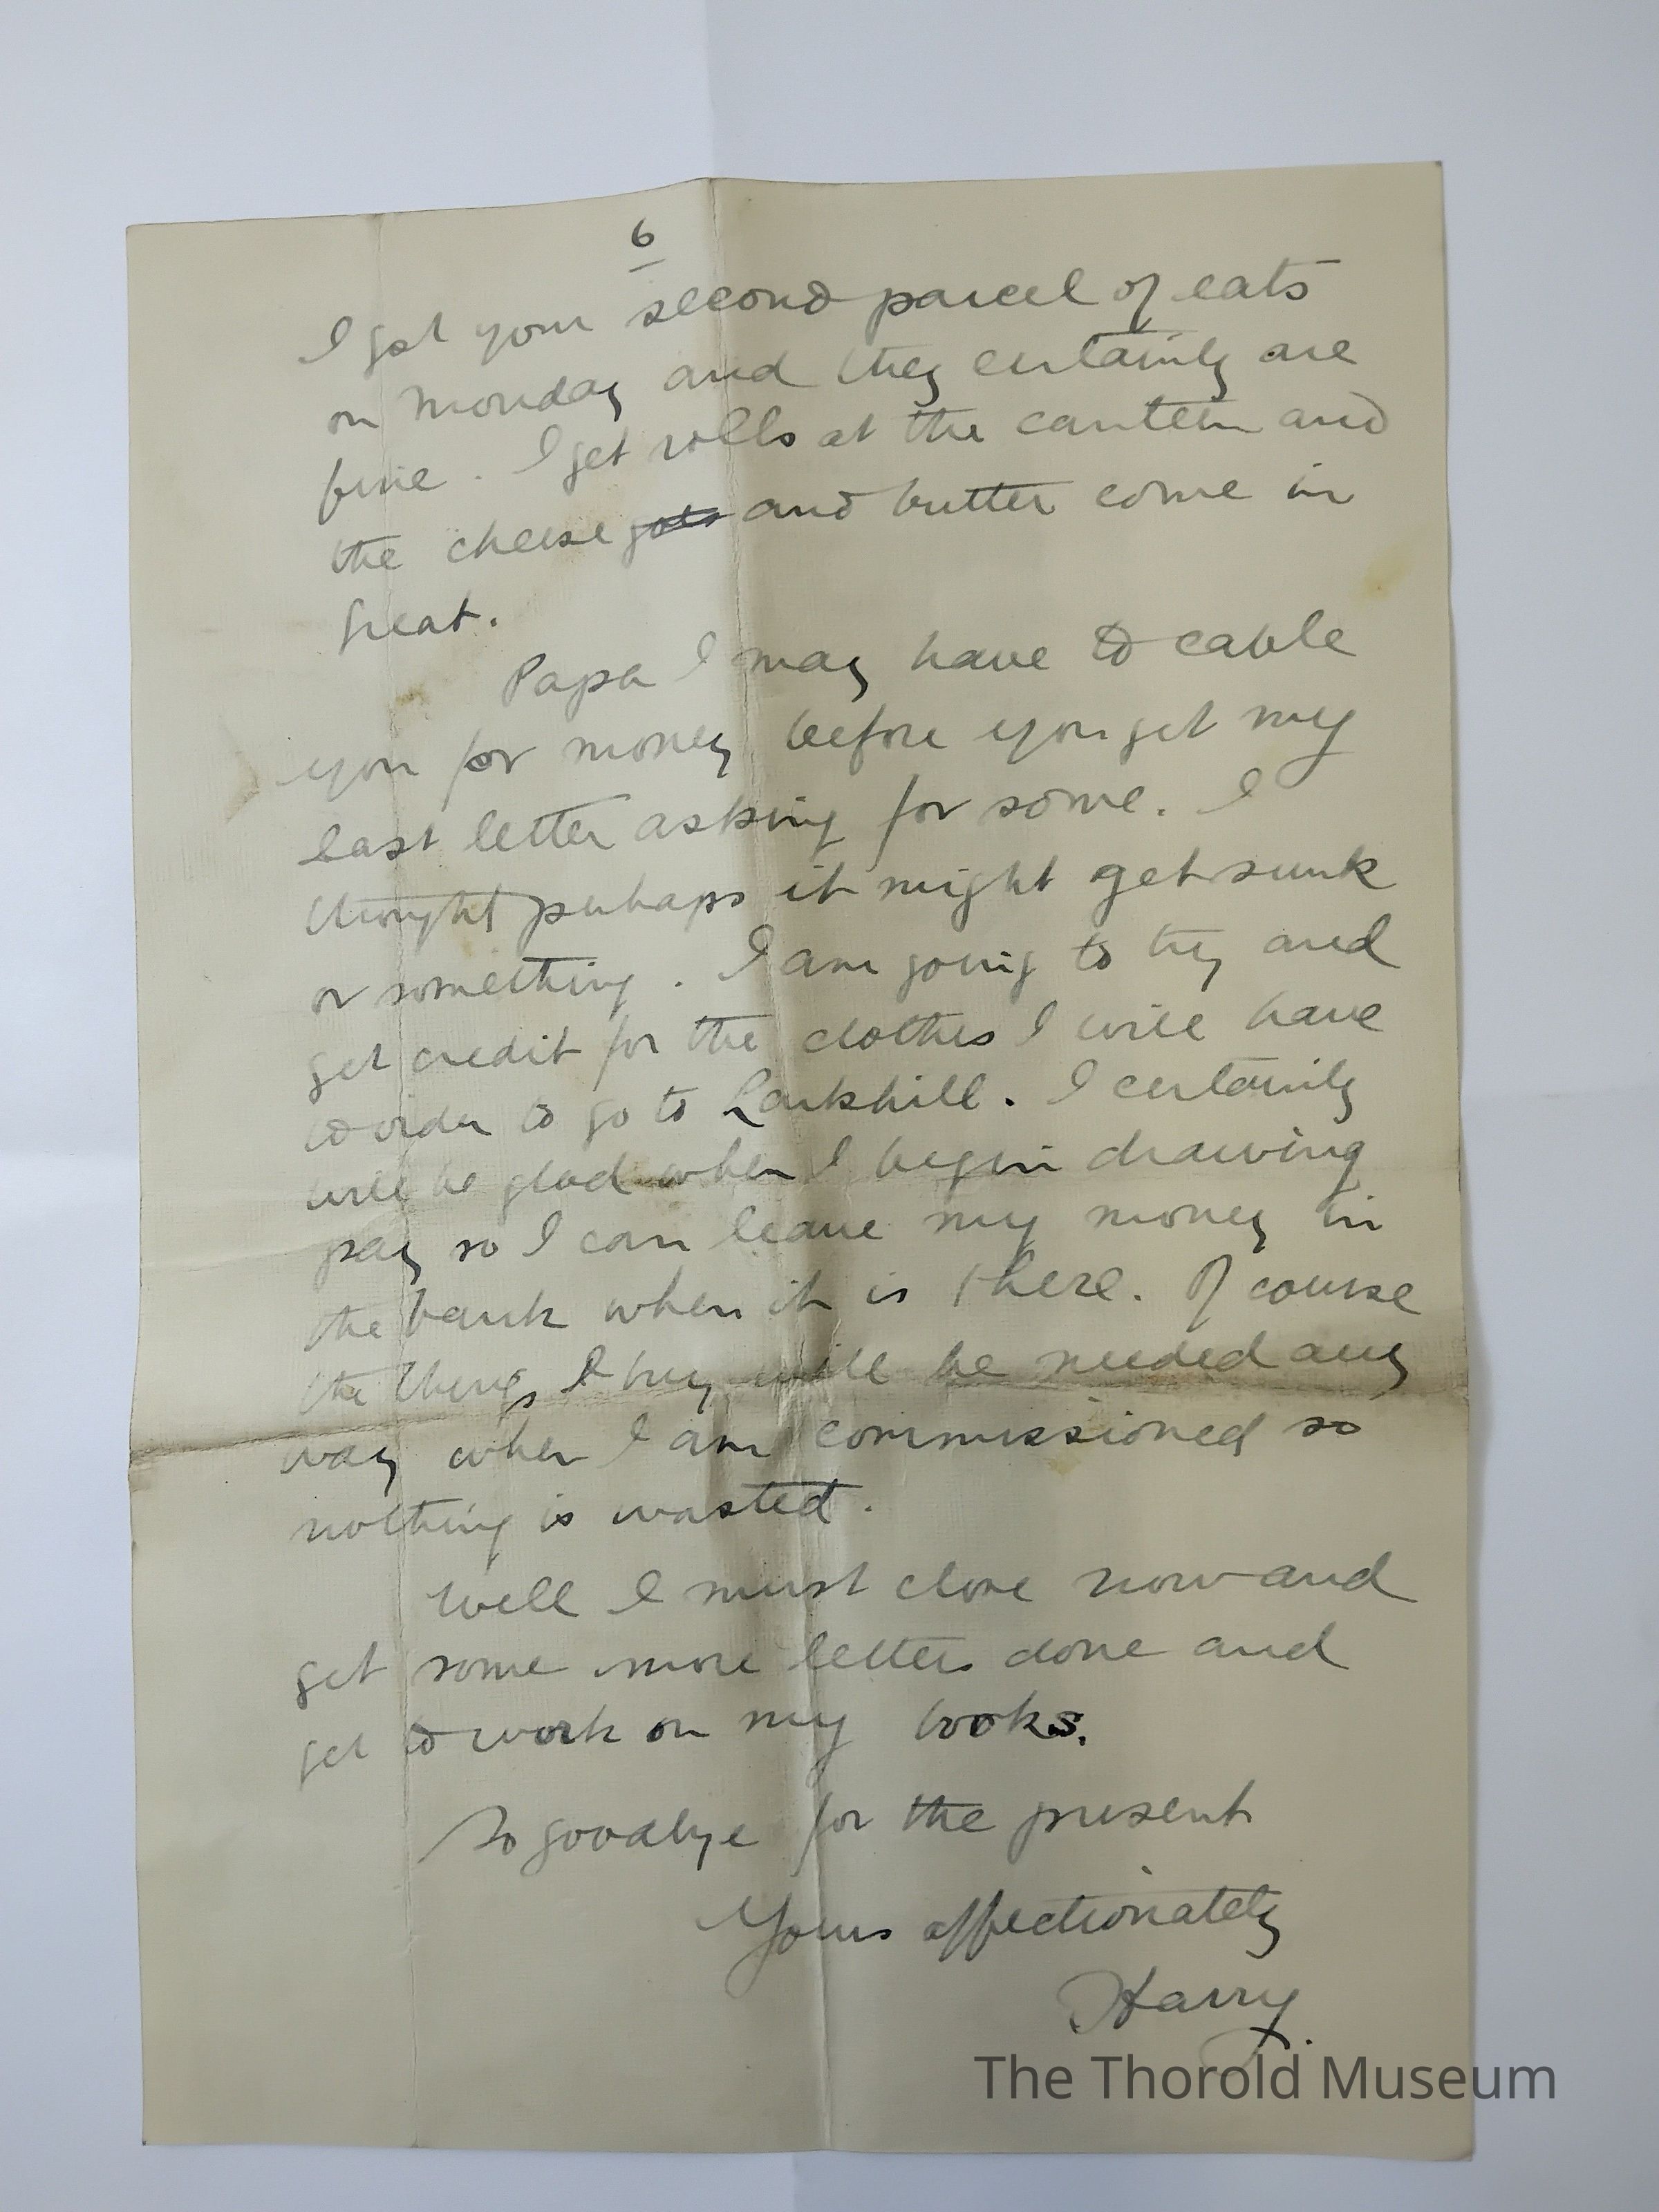 6
I got your second parcel of eats
on Monday and they certainly are
fine. I get rolls at the canteen and
the cheese goes and butter come in
great.
Papa I may have to cable
you for money before you get my
last letter asking for some. I
thought perhaps it might get sunk
or something. I am going to try and
get credit for the clothes I will have
to order to go to Larkhill. I certainly
will be glad when I begin drawing
pay so I can leave my money in
the bank when it is there. Of course
the things I buy will be needed any
way when I am commissioned so
nothing is wasted.
Well I must close now and
get some more letters done and
get to work on my books.
So goodbye for the present
Yours affectionately
Harry.
The Thorold Museum